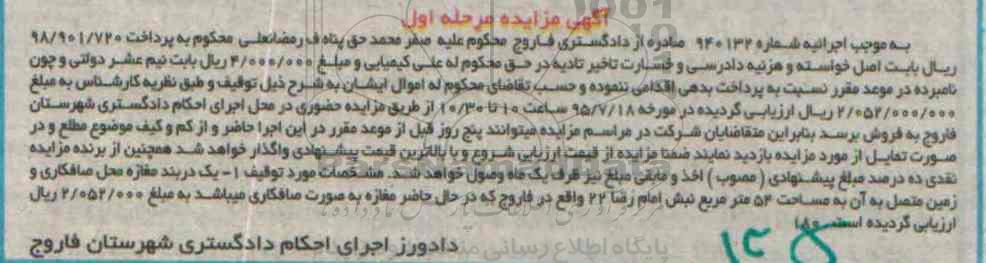 آگهی مزایده مرحله اول
به موجب اجرائیه شماره ۹۴۰۱۳۲ صادره از دادگستری فاروج محکوم علیه صفر محمد حق پناه ف رمضانعلی محکوم به پرداخت ۹۸/۹۰۱/۷۲۰
ریال بابت اصل خواسته و هزنیه دادرسی و خسارت تاخیر تادیه در حق محکوم له علی کیمیایی و مبلغ ۴/۰۰۰/۰۰۰ ریال بابت نیم عشر دولتی و چون
نامبرده در موعد مقرر نسبت به پرداخت بدهی اقدامی ننموده و حسب تقاضای محکوم له اموال ایشان به شرح ذیل توقیف و طبق نظریه کارشناس به مبلغ
۲/۰۵۲/۰۰۰/۰۰۰ ریال ارزیابی گردیده در مورخه ۹۵/۷/۱۸ ساعت ۱۰ تا ۱۰/۳۰ از طریق مزایده حضوری در محل اجرای احکام دادگستری شهرستان
فاروج به فروش برسد بنابراین متقاضایان شرکت در مراسم مزایده میتوانند پنج روز قبل از موعد مقرر در این اجرا حاضر و از کم و کیف موضوع مطلع و در
صورت تمایل از مورد مزایده بازدید نمایند ضمنا مزایده از قیمت ارزیابی شروع و با بالاترین قیمت پیشنهادی واگذار خواهد شد همچنین از برنده مزایده
نقدی ده درصد مبلغ پیشنهادی ( مصوب ) اخذ و مابقی مبلغ نیز ظرف یک ماه وصول خواهد شد. مشخصات مورد توقیف ۱- یک دربند مغازه محل صافکاری و
زمین متصل به آن به مساحت ۵۴ متر مربع نبش امام رضا ۲۲ واقع در فاروج که در حال حاضر مغازه به صورت صافکاری میباشد به مبلغ ۲/۰۵۲/۰۰۰ ریال
ارزیابی گردیده است
دادورز اجرای احکام دادگستری شهرستان فاروج
پایگاه اطلاع رسانی